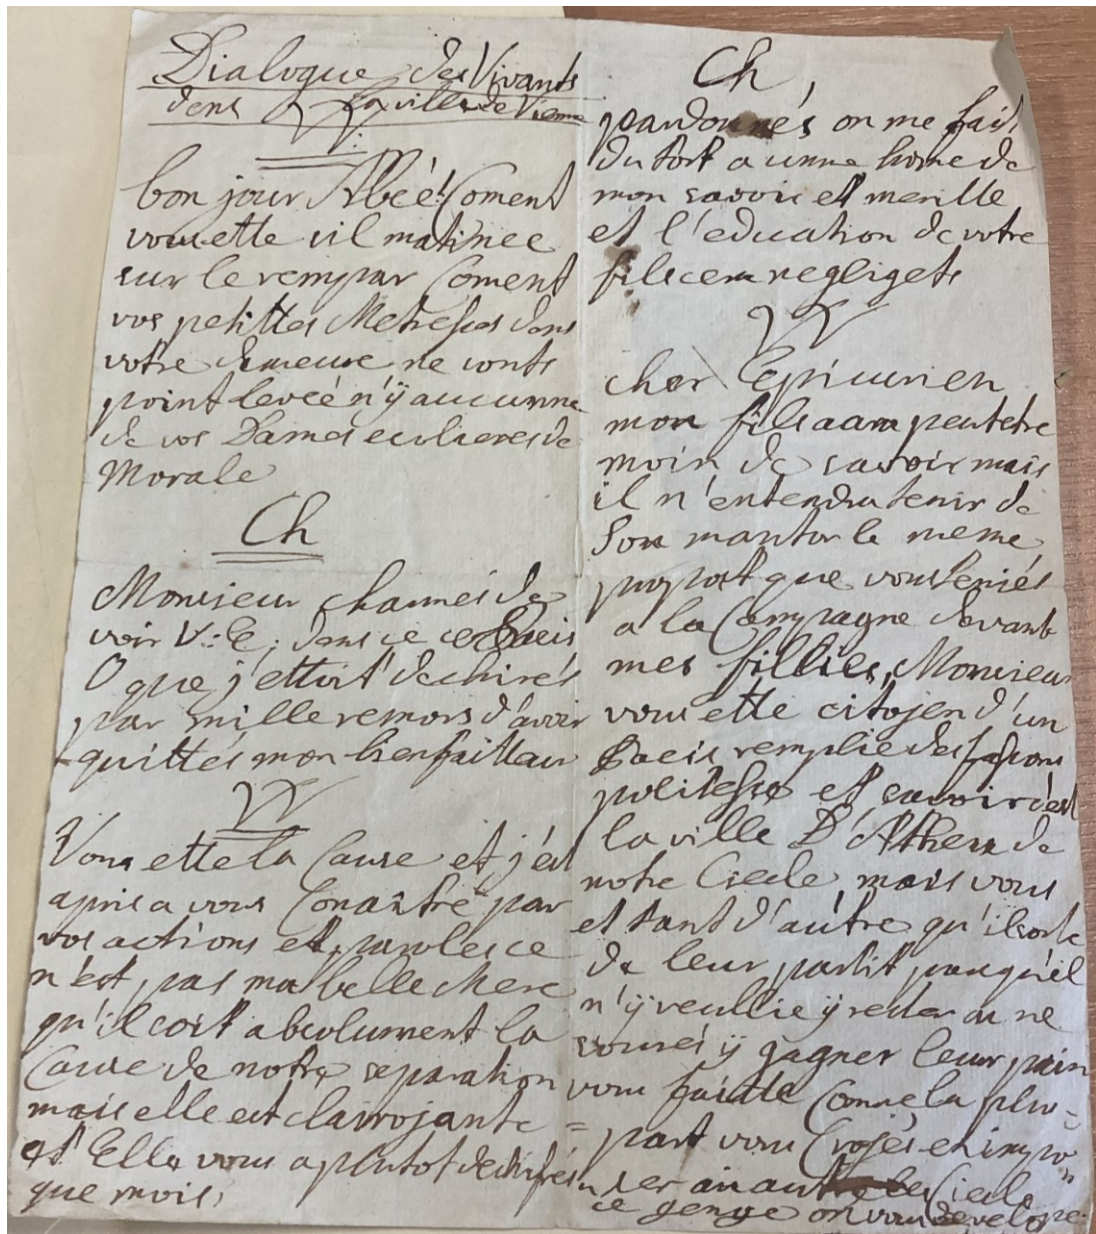 Dialogue des Vivants
dens la ville de Vienne
bon jour Abéé! Coment
vous ette sil matinee
sur le rempar Coment
vos petittes Metresses dens
votre demeure ne sonts
point levéé n'ÿ aucunne
de vos Dames ecolieres de
Morale
Ch
Monsieur charmés de
voir V: E: dens ce
O que j'ettoit dechirés
par mille remors d'avoir
quittés mon bienfaitteur
W
Vous ette la Cause et j'es
apris a vous Conaître par
vos actions et paroles ce
n'est pas ma belle Mere
qu'il soit absolument la
Cause de notre separation
mais elle est clairvojante
et Elle vous a plutot dechifrés
que mois,
Ch,
pardonnés on me fait
du tort a unne home de
mon savoir et merille
et l'education de votre
fils cera negligets
W
cher Epicurien
mon fils aura peutetre
moin de savoir mais
il n'entendra tenir de
Son mantor le meme
proport que vous teniés
a la Campagne devant
mes fillies, Monsieur
vous ette citojen d'un
Paeis remplie des fasons
politesse et savoir c'est
la ville D'Athens de
notre Ciecle, mais vous
et tant d'autre qu'il sorte
de leur partit parqu'il
n'ÿ veullie ÿ rester ou ne
ÿ gagner leur pain
vous faitte Come la plu=
=part vous Crojés en impo
ser an autre Ciecle
ce genre on vous develope